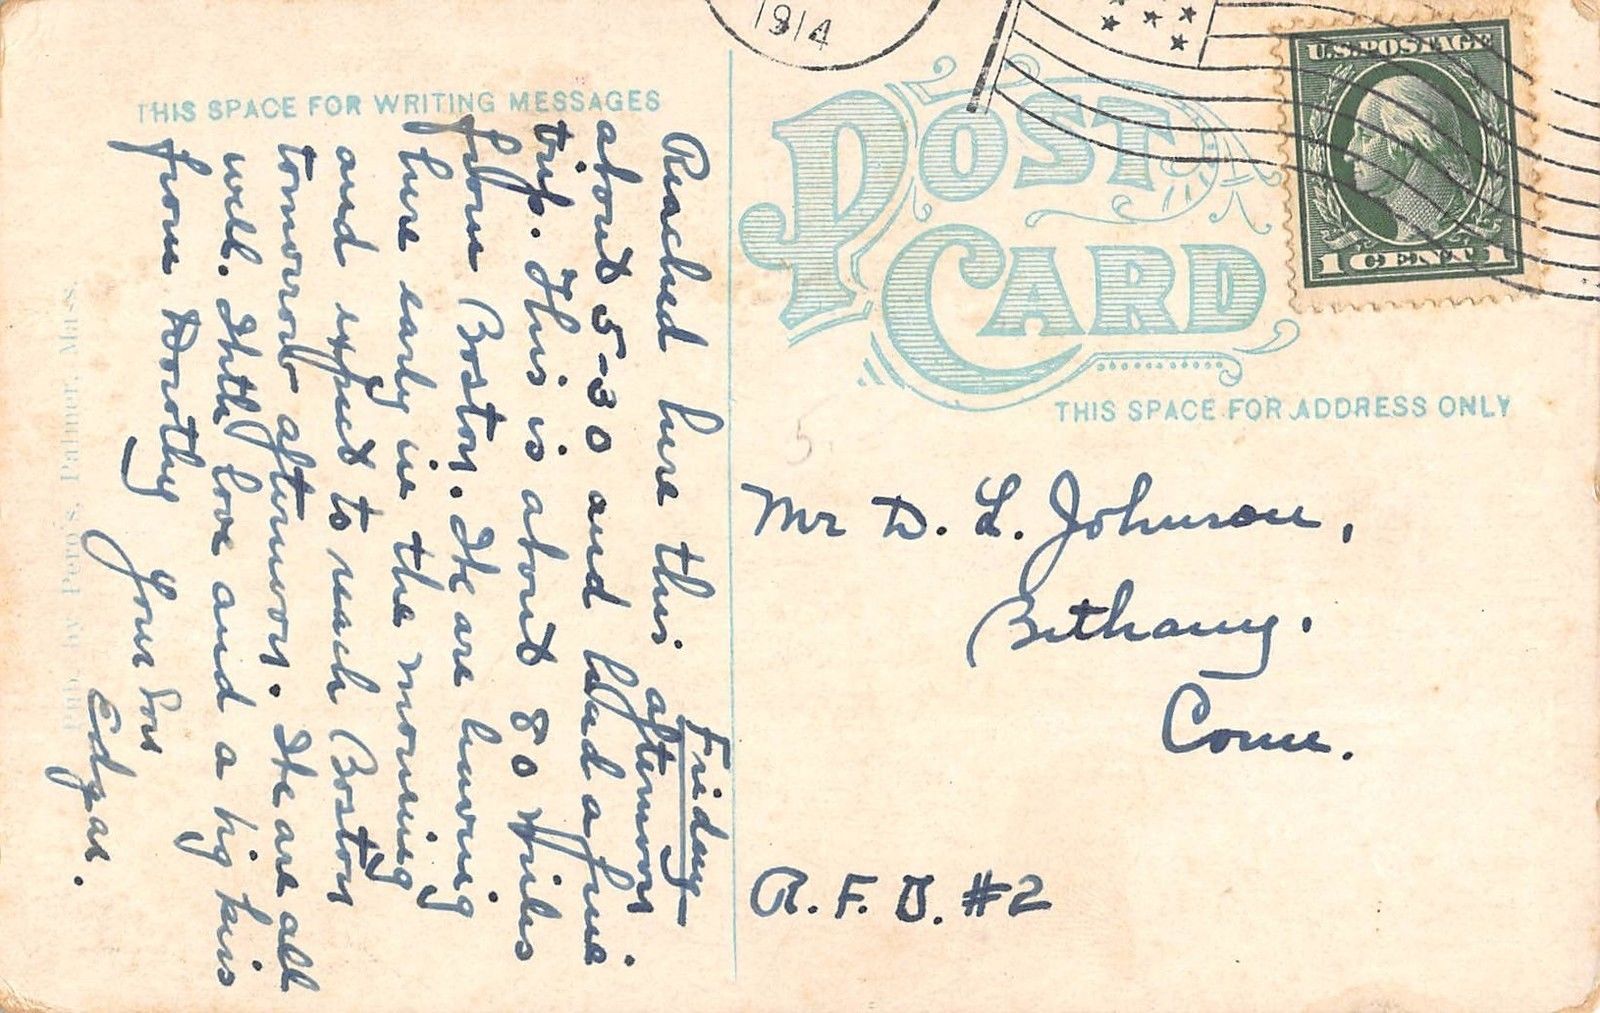 1914
U.S. POSTAGE
1 CENT 1
THIS SPACE FOR WRITING MESSAGES
POST
CARD
THIS SPACE FOR ADDRESS ONLY
Friday
Reached here this afternoon
about 5-30 and had a fine
trip. This is about 80 miles
from Boston. We are leaving
here early in the morning
and expect to reach Boston
tomorrow afternoon. We are all
well. With love and a big kiss
from Dorothy
Your Son
Edgar.
Mr D. L. Johnson,
Bethany.
Conn.
R.F.D. #2
5
Pub. by Palmer, Mass.